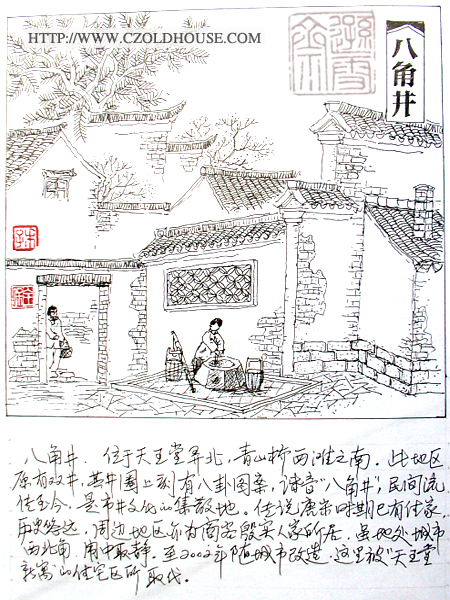 HTTP://WWW.CZOLDHOUSE.COM
八角井
八角井. 位于天王堂弄北,青山桥西滩之南. 此地区
原有双井,其井圈上刻有八卦图案,谐音"八角井",民间流
传至今. 是市井文化的集散地. 传说唐宋时期已有住家,
历史悠远,周边地区亦为商客殷实人家所居. 虽地处城市
西北角,闹中取静. 至2002年随城市改造,这里被"天王堂
新寓"的住宅区所取代.